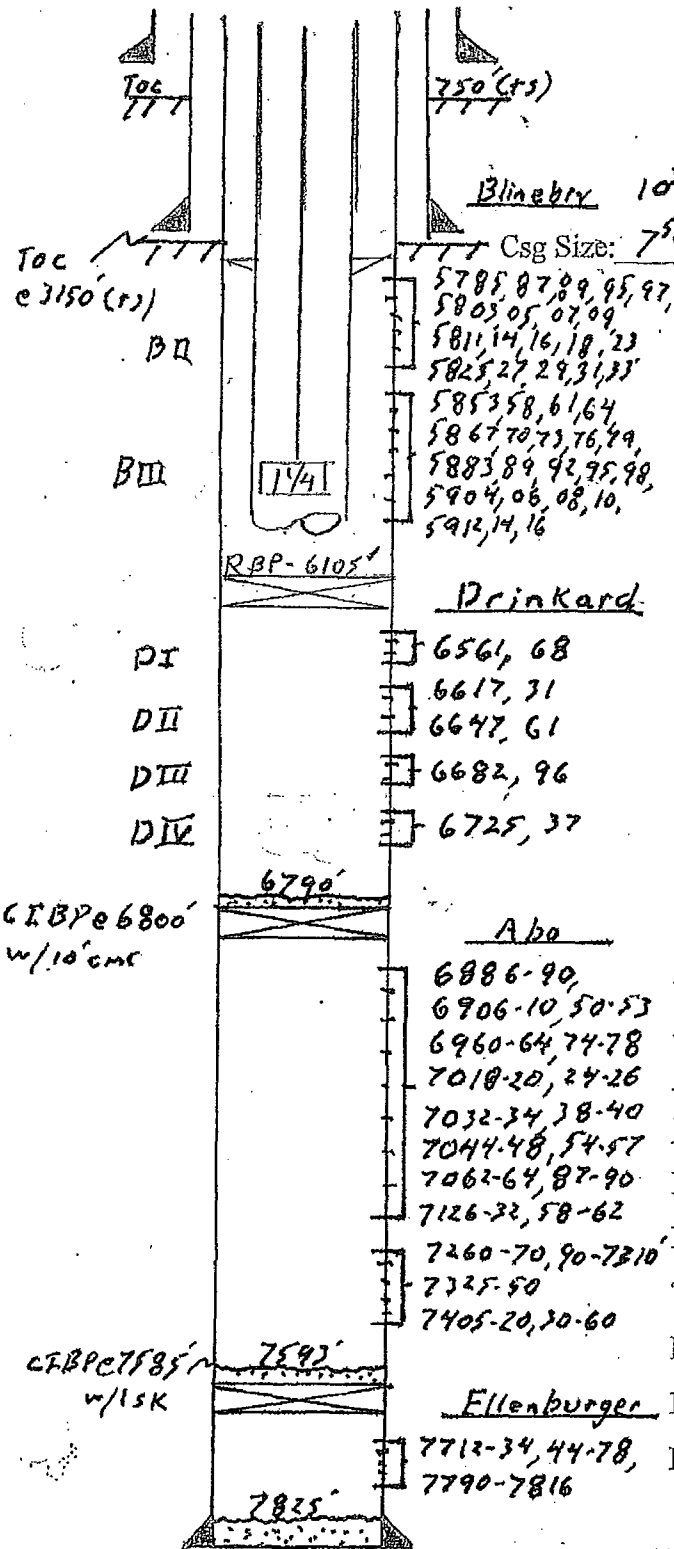 TOC 750' (ts)
Blinebry 10
Csg Size: 7 5
TOC
@ 3150' (ts)
5785, 87, 89, 95, 97,
5803, 05, 07, 09,
B II
5811, 14, 16, 18, 23
5825, 27, 29, 31, 33
5853, 58, 61, 64,
5867, 70, 73, 76, 79,
B III
1 1/4
5883, 89, 92, 95, 98,
5904, 06, 08, 10,
5912, 14, 16
RBP - 6105'
Drinkard
DI
6561, 68
DII
6617, 31
6647, 61
DIII
6682, 96
DIV
6725, 37
6790'
CIBP @ 6800'
w/10' cmt
Abo
6886-90,
6906-10, 50-53
6960-64, 74-78
7018-20, 24-26
7032-34, 38-40
7044-48, 54-57
7062-64, 87-90
7126-32, 58-62
7260-70, 90-7310'
7325-50
7405-20, 30-60
CIBP @ 7585'
7593'
w/1 SK
Ellenburger
7712-34, 44-78,
7790-7816
7825'